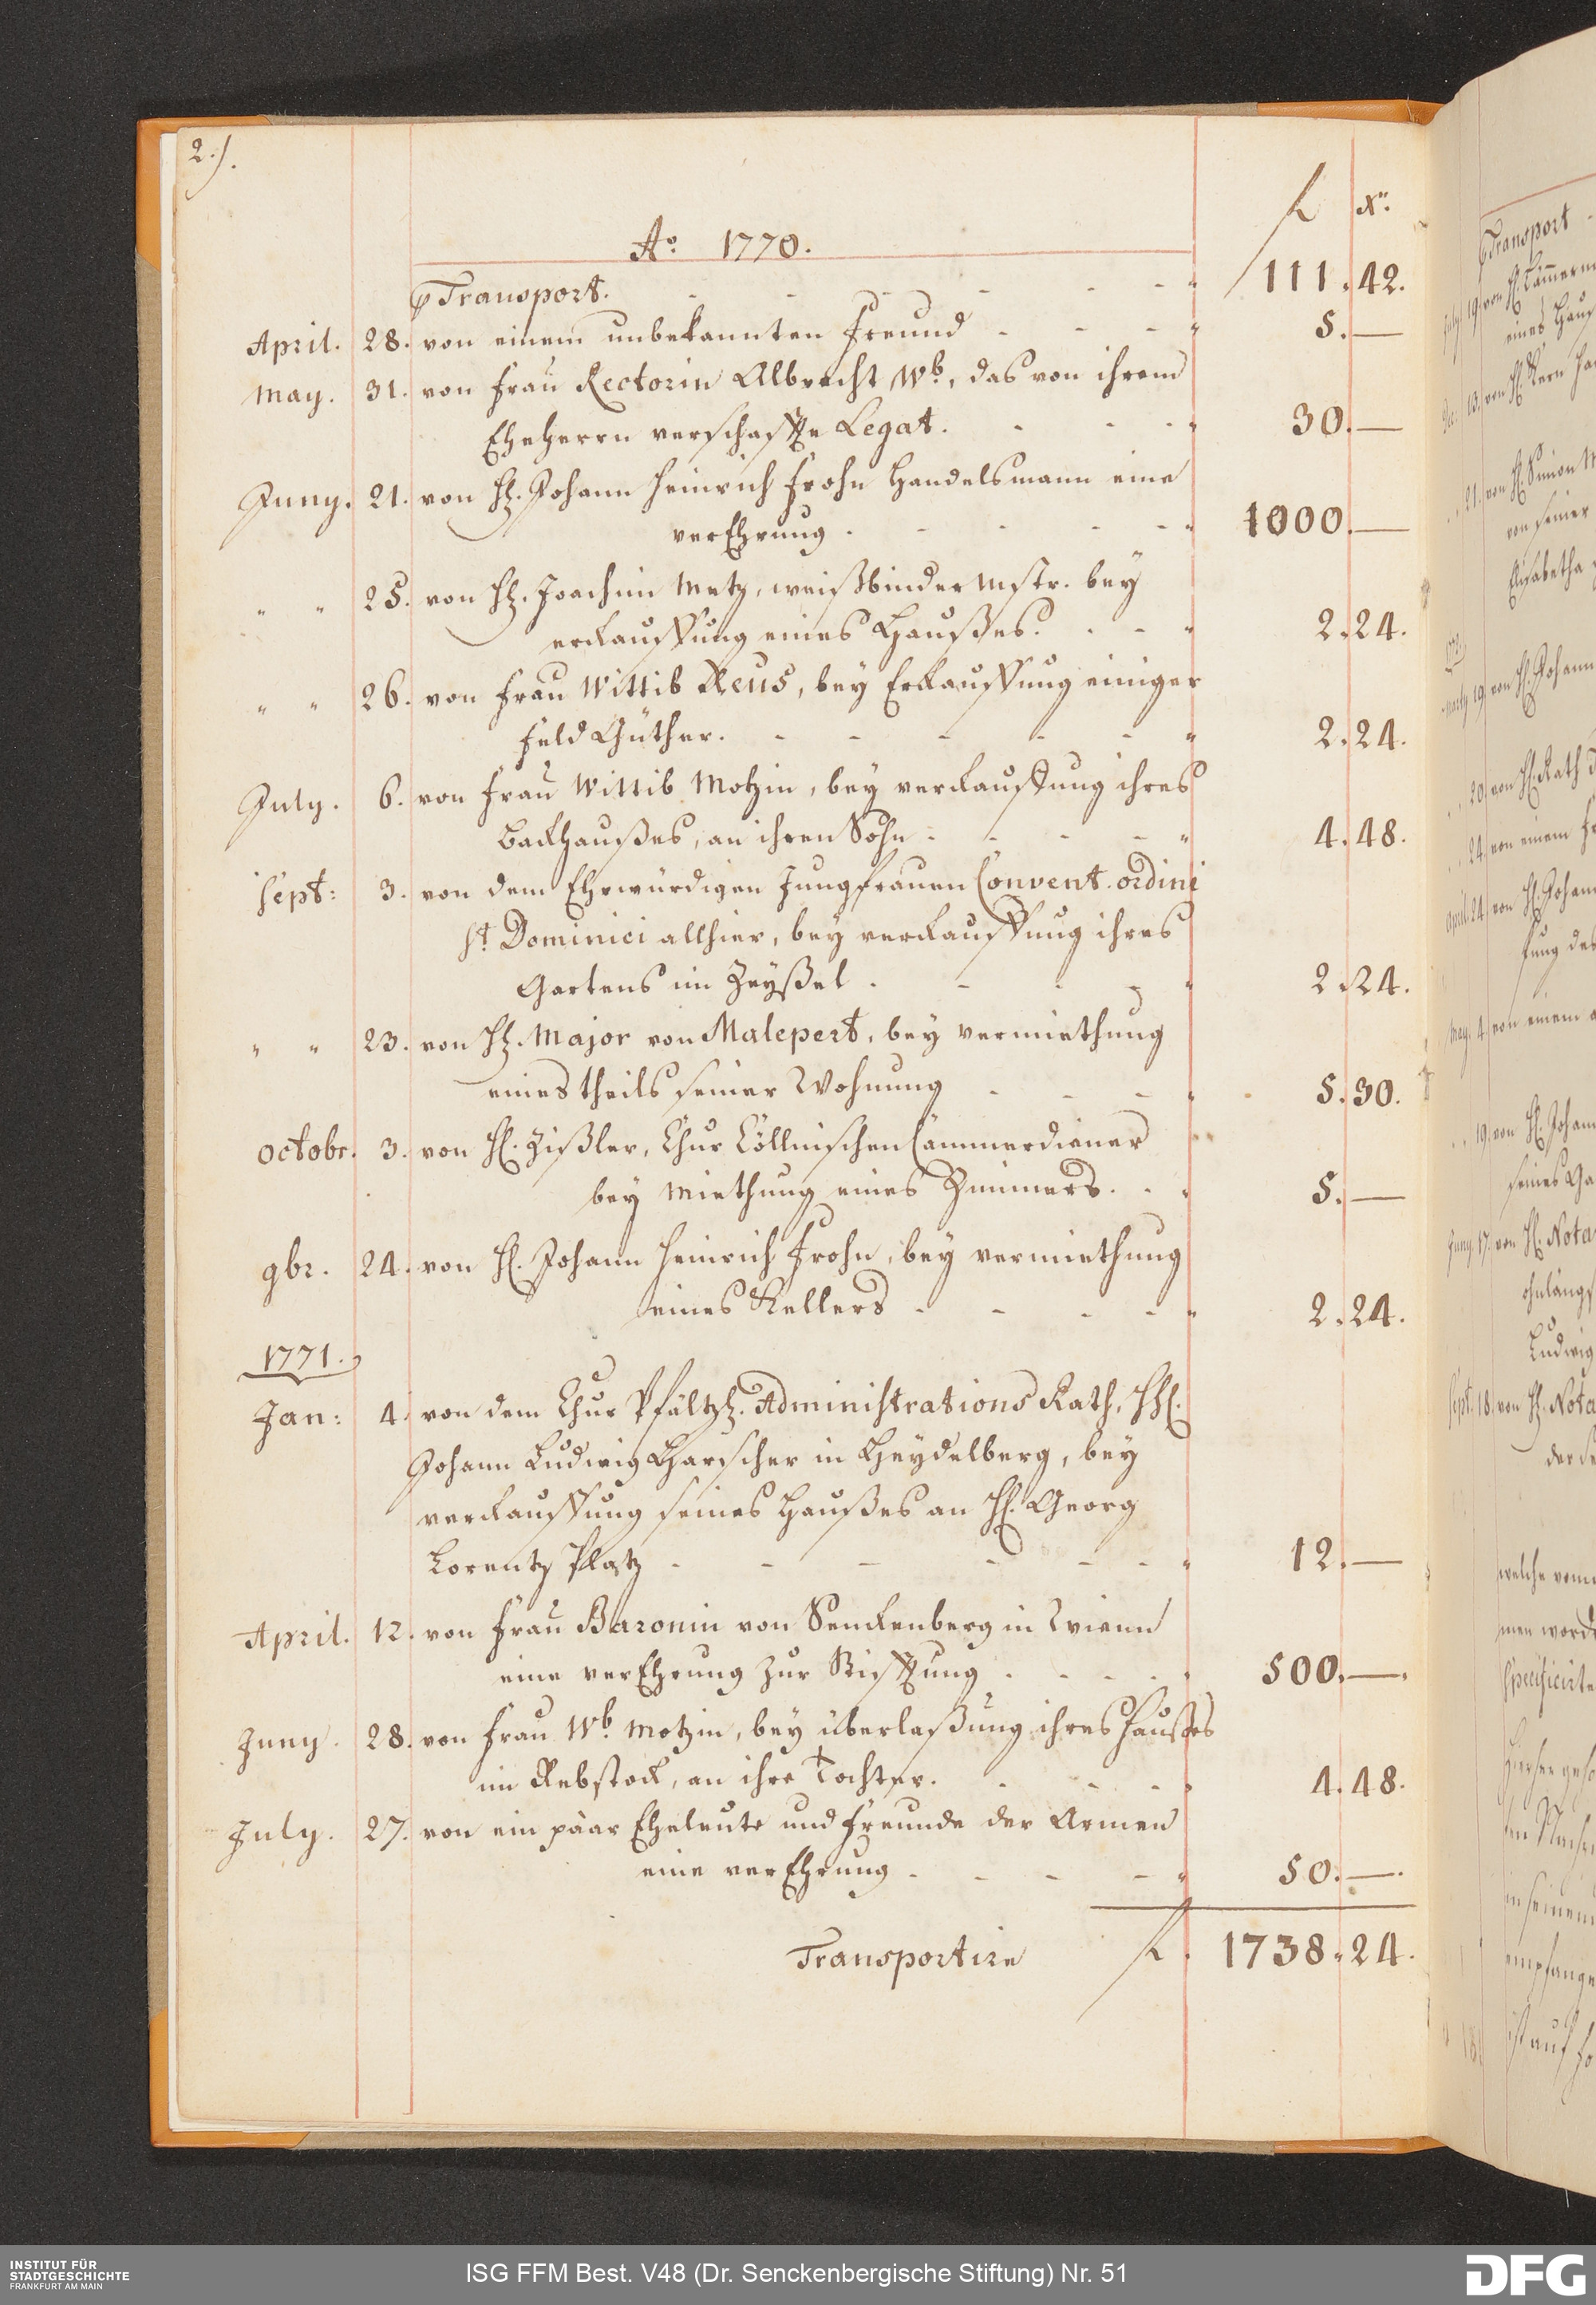 2.)
f Xr.
Ao. 1770.
Transport. - - - - - - " 111. 42.
April. 28. von einem unbekannten Freund - - - " 5. —
May. 31. von Frau Rectorin Albrecht Wb., das von ihrem
Eheherrn verschaffte Legat. - - - " 30. —
Juny. 21. von H. Johann Heinrich Frohn Handelsmann eine
verEhrung. - - - - " 1000. —
" " 25. von H. Joachim Metz, weißbinder Mstr. bey
erkauffung eines Haußes. - - " 2. 24.
" " 26. von Frau Wittib Reus, bey Erkauffung einiger
Feld Güther. - - - - - " 2. 24.
July. 6. von Frau Wittib Motzin, bey verkauffung ihres
Backhaußes, an ihren Sohn - - - - " 4. 48.
Sept: 3. von dem Ehrwürdigen Jungfrauen Convent. ordini
St. Dominici allhier, bey verkauffung ihres
Gartens im Zeyßel. - - - " 2. 24.
" " 23. von H. Major von Malepert, bey vermiethung
eines theils seiner Wohnung - - - " 5. 30.
Octobr. 3. von H. Zißler, Chur Cöllnischen Cammerdiener
bey Miethung eines Zimmers. - " 5. —
9br. 24. von H. Johann Heinrich Frohn, bey vermiethung
eines Kellers - - - - " 2. 24.
1771.
Jan: 4. von dem Chur Pfältzl. Administrations Rath, HH.
Johann Ludwig Harscher in Heydelberg, bey
verkauffung seines Haußes an H. Georg
Lorentz Platz - - - - - - " 12. —
April. 12. von Frau Baronin von Senckenberg in Wienn
eine verEhrung zur Stifftung - - - - " 500. —
Juny. 28. von Frau Wb. Motzin, bey überlaßung ihres Haußes
im Rebstock, an ihre Tochter. - - - " 4. 48.
July. 27. von ein päar Eheleute und Freunde der Armen
eine verEhrung - - - - " 50. —
Transportire f. 1738. 24.
INSTITUT FÜR
STADTGESCHICHTE
FRANKFURT AM MAIN
ISG FFM Best. V48 (Dr. Senckenbergische Stiftung) Nr. 51
DFG